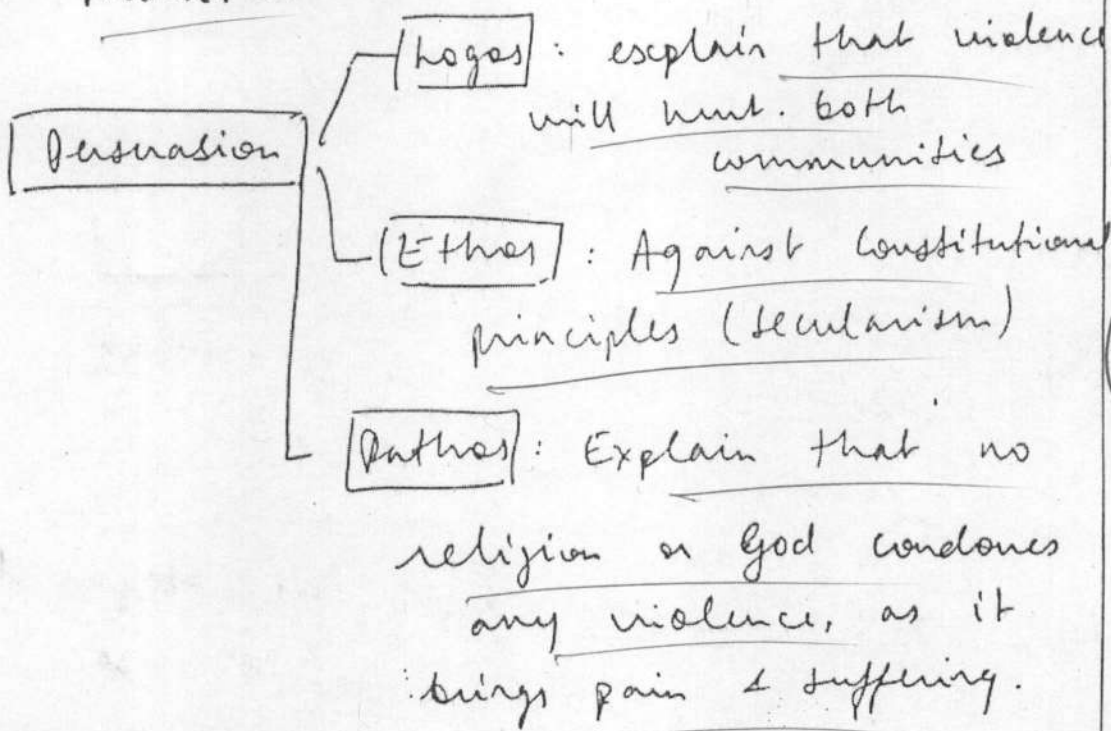 Logos : explain that violence
will hurt both
communities
Persuasion
Ethos : Against Constitutional
principles (secularism)
Pathos : Explain that no
religion or God condones
any violence, as it
brings pain & suffering.